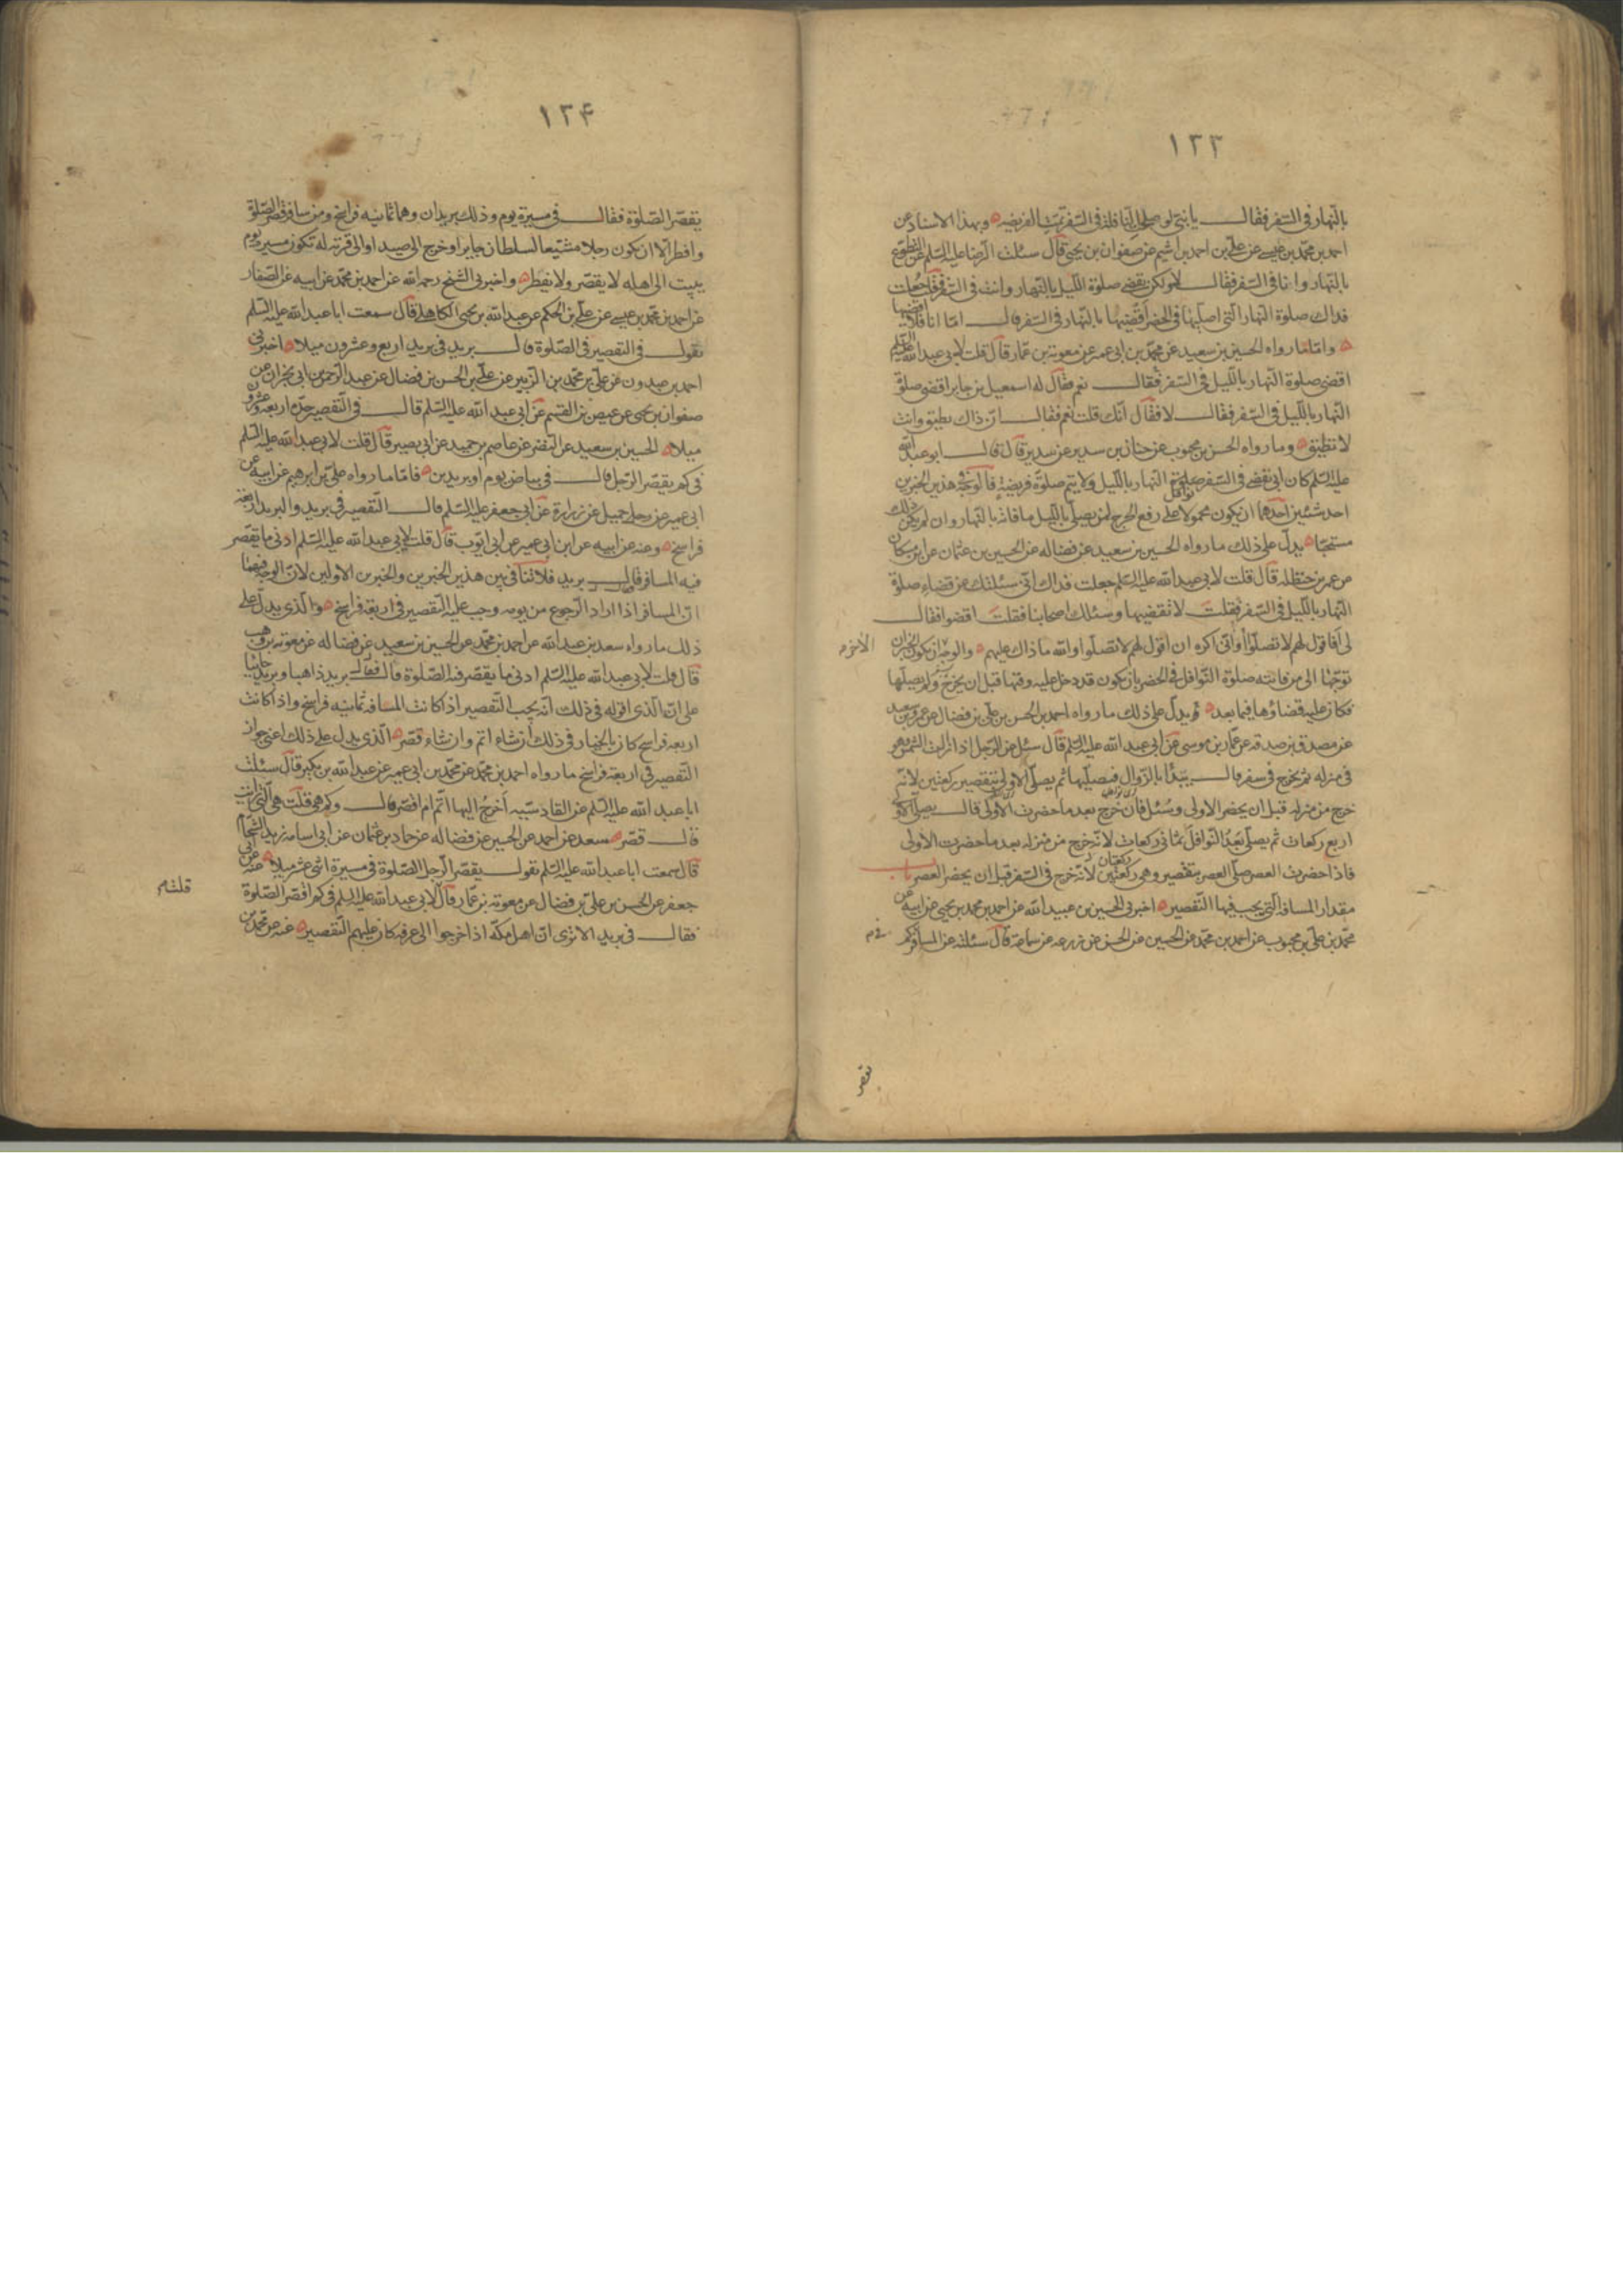 ١٢٣
بالنهار فى السفر فقال يا بنى لو صلحت النافلة فى السفر تمت الفريضه وبهذا الاسناد عن
احمد بن محمد بن عيسى عن على بن احمد بن اشيم عن صفوان بن يحيى قال سئلت الرضا عليه السلم عن التطوع
بالنهار وانا فى السفر فقال لا ولكن تقضى صلوة الليل بالنهار وانت فى السفر فقلت جعلت
فداك صلوة النهار التى اصليها فى الحضر اقضيها بالنهار فى السفر قال اما انا فلا اقضيها
واما ما رواه الحسين بن سعيد عن محمد بن ابى عمير عن معوية بن عمار قال قلت لابى عبد الله عليه السلم
اقضى صلوة النهار بالليل فى السفر فقال نعم فقال له اسمعيل بن جابر اقضى صلوة
النهار بالليل فى السفر فقال لا فقال انك قلت نعم فقال ان ذاك يطيق وانت
لا تطيق وما رواه الحسن بن محبوب عن حنان بن سدير عن سدير قال قال ابو عبد الله
عليه السلم كان ابى يقضى فى السفر نوافل النهار بالليل ولا يتم صلوة فريضة فالوجه فى هذين الخبرين
احد شيئين احدهما ان يكون محمولا على رفع الحرج لمن يصلى بالليل ما فاته بالنهار وان لم يكن ذلك
مستحبا يدل على ذلك ما رواه الحسين بن سعيد عن فضاله عن الحسين بن عثمان عن ابن مسكان
عن عمر بن حنظله قال قلت لابى عبد الله عليه السلم جعلت فداك انى سئلتك عن قضاء صلوة
النهار بالليل فى السفر فقلت لا تقضيها وسئلك اصحابنا فقلت اقضوا فقال
لى افاقول لهم لا تصلوا وانى اكره ان اقول لهم لا تصلوا والله ما ذاك عليهم والوجه الاخر ان يكون الخبران
توجها الى من فاتته صلوة النوافل فى الحضر بان يكون قد دخل عليه وقتها قبل ان يخرج ولم يصلها
فكان عليه قضاؤها فيما بعد يدل على ذلك ما رواه احمد بن الحسن بن على بن فضال عن عمرو بن سعيد
عن مصدق بن صدقه عن عمار بن موسى عن ابى عبد الله عليه السلم قال سئل عن الرجل اذا زالت الشمس وهو
فى منزله ثم يخرج فى سفر قال يبدأ بالزوال فيصليها ثم يصلى الاولى بتقصير ركعتين لانه
خرج من منزله قبل ان يحضر الاولى وسئل فان خرج بعد ما حضرت الاولى قال يصلى الاولى
اربع ركعات ثم يصلى بعد النوافل ثمانى ركعات لانه خرج من منزله بعد ما حضرت الاولى
فاذا حضرت العصر صلى العصر بتقصير وهى ركعتين لانه خرج فى السفر قبل ان يحضر العصر باب
مقدار المسافة التى يجب فيها التقصير اخبرنى الحسين بن عبيد الله عن احمد بن محمد بن يحيى عن ابيه عن
محمد بن على بن محبوب عن احمد بن محمد عن الحسين عن الحسن عن زرعه عن سماعة قال سئلته عن المسافر فى كم
تقصر
١٢۴
يقصر الصلوة فقال فى مسيرة يوم وذلك بريدان وهما ثمانيه فراسخ ومن سافر قصر الصلوة
وافطر الا ان يكون رجلا مشيعا لسلطان جابر او خرج الى صيد او الى قرية له تكون مسيرة يوم
يبيت الى اهله لا يقصر ولا يفطر واخبرنى الشيخ رحمه الله عن احمد بن محمد عن ابيه عن الصفار
عن احمد بن محمد بن عيسى عن على بن الحكم عن عبد الله بن يحيى الكاهلى قال سمعت ابا عبد الله عليه السلم
يقول فى التقصير فى الصلوة قال بريد فى بريد اربع وعشرون ميلا اخبرنى
احمد بن عبدون عن على بن محمد بن الزبير عن على بن الحسن بن فضال عن عبد الرحمن بن ابى نجران عن
صفوان بن يحيى عن عيص بن القسم عن ابى عبد الله عليه السلم قال فى التقصير حده اربعة وعشرون
ميلا الحسين بن سعيد عن النضر عن عاصم بن حميد عن ابى بصير قال قلت لابى عبد الله عليه السلم
فى كم يقصر الرجل قال فى بياض يوم او بريدين فاما ما رواه على بن ابرهيم عن ابيه عن
ابى عمير عن رجل جميل عن زرارة عن ابى جعفر عليه السلم قال التقصير فى بريد والبريد اربعة
فراسخ وعنه عن ابيه عن ابن ابى عمير عن ابى ايوب قال قلت لابى عبد الله عليه السلم ادنى ما يقصر
فيه المسافر قال بريد فلا تنافى بين هذين الخبرين والخبرين الاولين لان الوجه فيهما
ان المسافر اذا اراد الرجوع من يومه وجب عليه التقصير فى اربعة فراسخ والذى يدل على
ذلك ما رواه سعد بن عبد الله عن احمد بن محمد عن الحسين بن سعيد عن فضاله عن معوية بن وهب
قال قلت لابى عبد الله عليه السلم ادنى ما يقصر فيه الصلوة قال بريد ذاهبا وبريد جائيا
على ان الذى اقوله فى ذلك انه يجب التقصير اذا كانت المسافه ثمانيه فراسخ واذا كانت
اربعه فراسخ كان بالخيار فى ذلك ان شاء اتم وان شاء قصر الذى يدل على ذلك اعنى جواز
التقصير فى اربعة فراسخ ما رواه احمد بن محمد عن محمد بن ابى عمير عن عبد الله بن بكير قال سئلت
ابا عبد الله عليه السلم عن القادسيه اخرج اليها اتم ام اقصر قال وكم هى قلت هى التى رايت
قال قصر سعد عن احمد عن الحسين عن فضاله عن حماد بن عثمان عن ابى اسامه زيد الشحام
قال سمعت ابا عبد الله عليه السلم يقول يقصر الرجل الصلوة فى مسيرة اثنى عشر ميلا عنه عن ابى
جعفر عن الحسن بن على بن فضال عن معوية بن عمار قال لابى عبد الله عليه السلم فى كم اقصر الصلوة
قلت
فقال فى بريد الا ترى ان اهل مكة اذا خرجوا الى عرفه كان عليهم التقصير عنه عن محمد بن